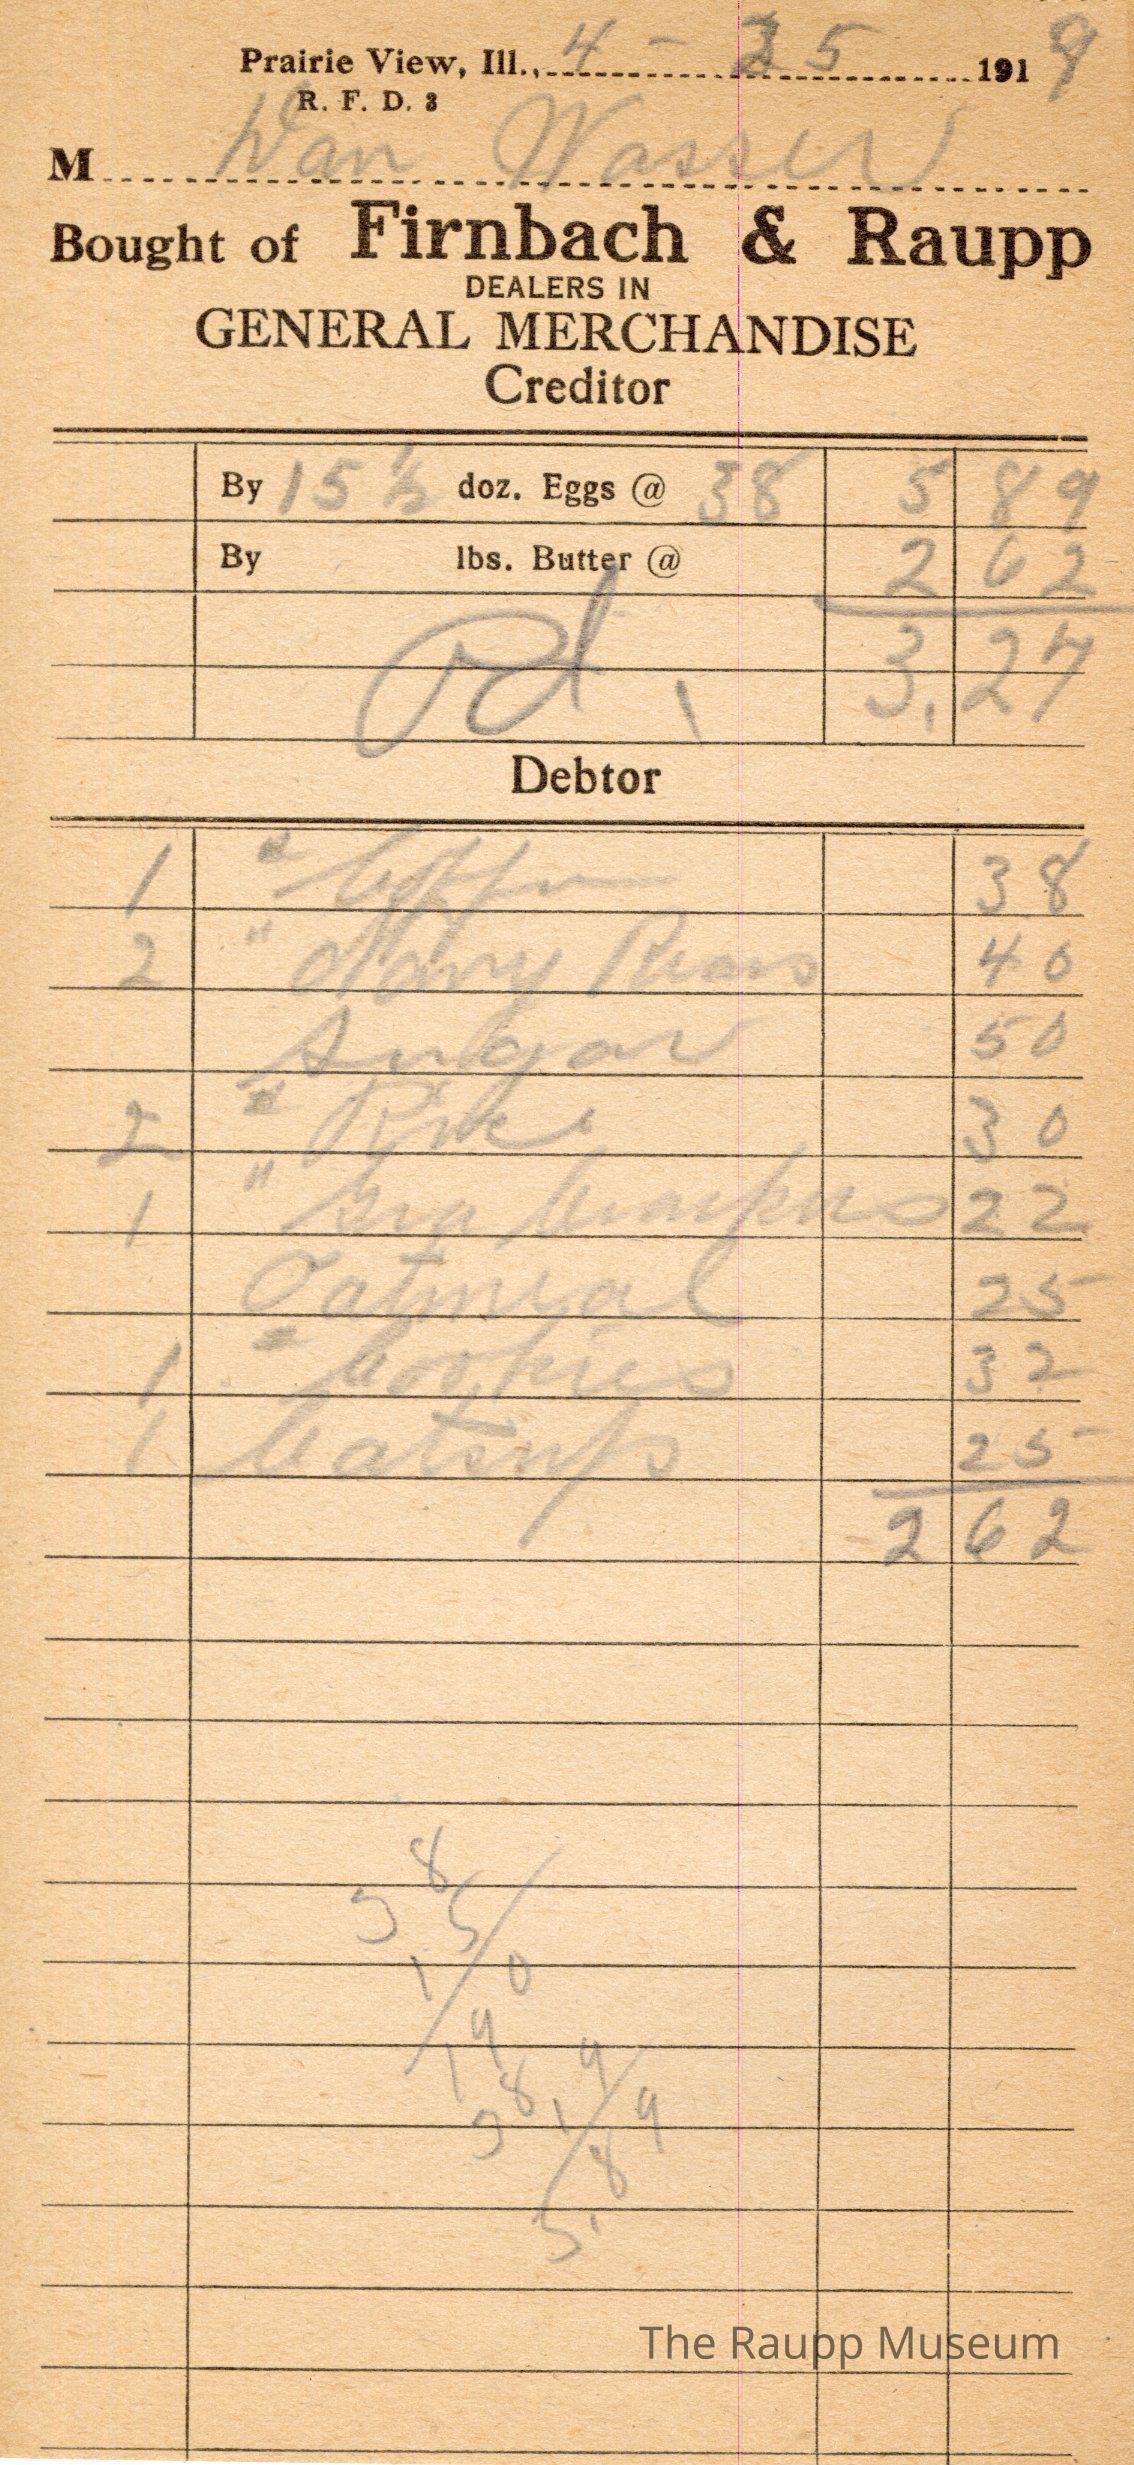 Prairie View, Ill., 4 - 25 1919
R. F. D. 3
M Dan Wasser
Bought of Firnbach & Raupp
DEALERS IN
GENERAL MERCHANDISE
Creditor
By 15 ½ doz. Eggs @ 38 5 89
By lbs. Butter @ 2 62
Pd. 3.27
Debtor
1 # Coffee 38
2 " Navy Beans 40
Sugar 50
2 # Rice 30
1 " Crackers 22
Oatmeal 25
1 # Cookies 32
1 Catsup 25
2 62
38
5
1 0
19
38 19
9
5.8
The Raupp Museum